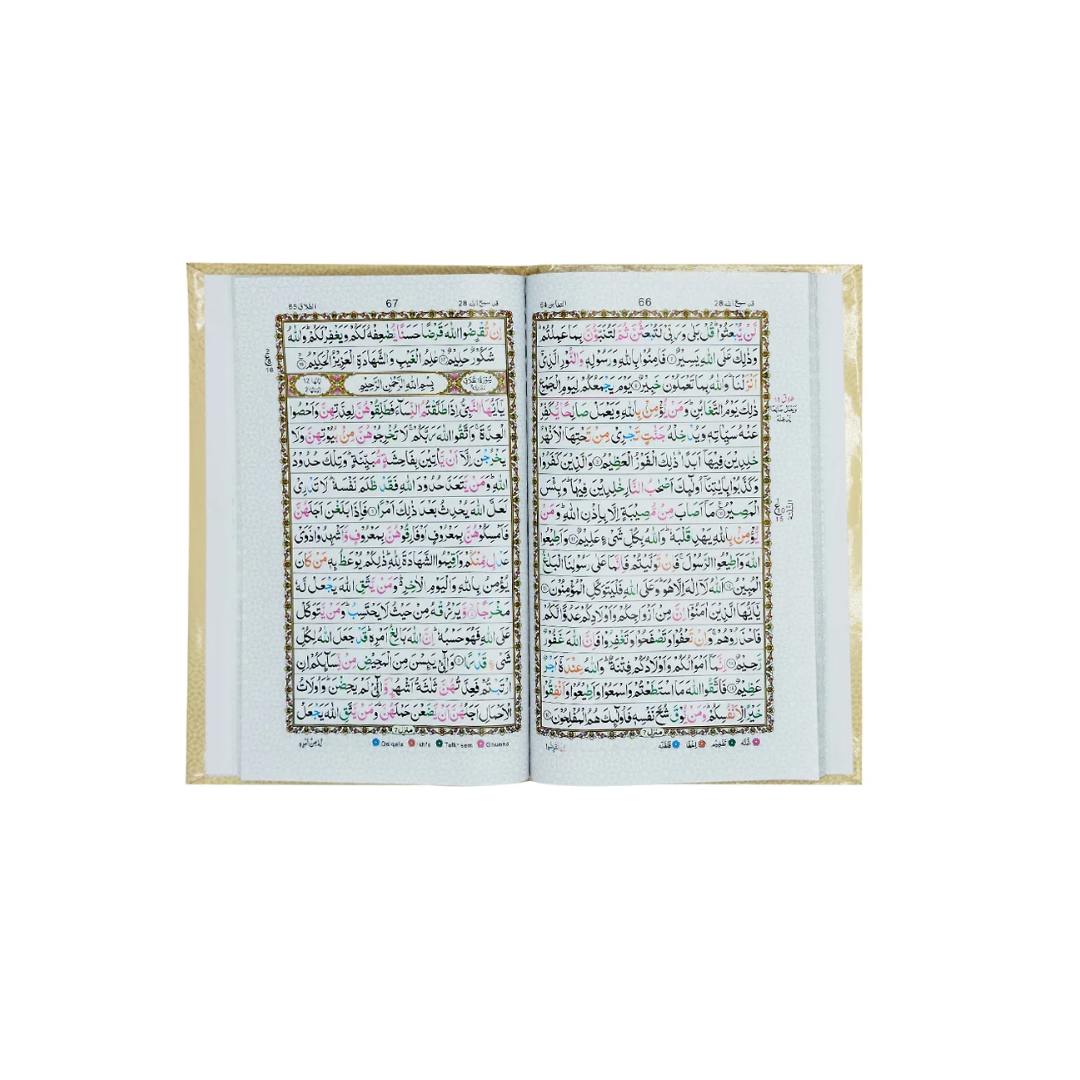 قد سمع الله 28 66 التغابن 64
لَّنْ يُّبْعَثُوْا قُلْ بَلٰى وَرَبِّىْ لَتُبْعَثُنَّ ثُمَّ لَتُنَبَّؤُنَّ بِمَا عَمِلْتُمْ
وَذٰلِكَ عَلَى اللّٰهِ يَسِيْرٌ ۷ فَاٰمِنُوْا بِاللّٰهِ وَرَسُوْلِهٖ وَالنُّوْرِ الَّذِىْ
اَنْزَلْنَا وَاللّٰهُ بِمَا تَعْمَلُوْنَ خَبِيْرٌ ۸ يَوْمَ يَجْمَعُكُمْ لِيَوْمِ الْجَمْعِ
ذٰلِكَ يَوْمُ التَّغَابُنِ وَمَنْ يُّؤْمِنْ بِاللّٰهِ وَيَعْمَلْ صَالِحًا يُّكَفِّرْ
عَنْهُ سَيِّاٰتِهٖ وَيُدْخِلْهُ جَنّٰتٍ تَجْرِىْ مِنْ تَحْتِهَا الْاَنْهٰرُ
خٰلِدِيْنَ فِيْهَا اَبَدًا ذٰلِكَ الْفَوْزُ الْعَظِيْمُ ۹ وَالَّذِيْنَ كَفَرُوْا
وَكَذَّبُوْا بِاٰيٰتِنَا اُولٰٓئِكَ اَصْحٰبُ النَّارِ خٰلِدِيْنَ فِيْهَا وَبِئْسَ
الْمَصِيْرُ ۱۰ مَا اَصَابَ مِنْ مُّصِيْبَةٍ اِلَّا بِاِذْنِ اللّٰهِ وَمَنْ
يُّؤْمِنْ بِاللّٰهِ يَهْدِ قَلْبَهٗ وَاللّٰهُ بِكُلِّ شَىْءٍ عَلِيْمٌ ۱۱ وَاَطِيْعُوا
اللّٰهَ وَاَطِيْعُوا الرَّسُوْلَ فَاِنْ تَوَلَّيْتُمْ فَاِنَّمَا عَلٰى رَسُوْلِنَا الْبَلٰغُ
الْمُبِيْنُ ۱۲ اَللّٰهُ لَا اِلٰهَ اِلَّا هُوَ وَعَلَى اللّٰهِ فَلْيَتَوَكَّلِ الْمُؤْمِنُوْنَ ۱۳
يٰاَيُّهَا الَّذِيْنَ اٰمَنُوْا اِنَّ مِنْ اَزْوَاجِكُمْ وَاَوْلَادِكُمْ عَدُوًّا لَّكُمْ
فَاحْذَرُوْهُمْ وَاِنْ تَعْفُوْا وَتَصْفَحُوْا وَتَغْفِرُوْا فَاِنَّ اللّٰهَ غَفُوْرٌ
رَّحِيْمٌ ۱۴ اِنَّمَا اَمْوَالُكُمْ وَاَوْلَادُكُمْ فِتْنَةٌ وَاللّٰهُ عِنْدَهٗ اَجْرٌ
عَظِيْمٌ ۱۵ فَاتَّقُوا اللّٰهَ مَا اسْتَطَعْتُمْ وَاسْمَعُوْا وَاَطِيْعُوْا وَاَنْفِقُوْا
خَيْرًا لِّاَنْفُسِكُمْ وَمَنْ يُّوْقَ شُحَّ نَفْسِهٖ فَاُولٰٓئِكَ هُمُ الْمُفْلِحُوْنَ ۱۶
منزل ۷
غنّه تفخیم اخفا قلقله
قد سمع الله 28 67 الطلاق 65
اِنْ تُقْرِضُوا اللّٰهَ قَرْضًا حَسَنًا يُّضٰعِفْهُ لَكُمْ وَيَغْفِرْ لَكُمْ وَاللّٰهُ
شَكُوْرٌ حَلِيْمٌ ۱۷ عٰلِمُ الْغَيْبِ وَالشَّهَادَةِ الْعَزِيْزُ الْحَكِيْمُ ۱۸
بِسْمِ اللّٰهِ الرَّحْمٰنِ الرَّحِيْمِ
يٰاَيُّهَا النَّبِىُّ اِذَا طَلَّقْتُمُ النِّسَاءَ فَطَلِّقُوْهُنَّ لِعِدَّتِهِنَّ وَاَحْصُوا
الْعِدَّةَ وَاتَّقُوا اللّٰهَ رَبَّكُمْ لَا تُخْرِجُوْهُنَّ مِنْ بُيُوْتِهِنَّ وَلَا
يَخْرُجْنَ اِلَّا اَنْ يَّاْتِيْنَ بِفَاحِشَةٍ مُّبَيِّنَةٍ وَتِلْكَ حُدُوْدُ
اللّٰهِ وَمَنْ يَّتَعَدَّ حُدُوْدَ اللّٰهِ فَقَدْ ظَلَمَ نَفْسَهٗ لَا تَدْرِىْ
لَعَلَّ اللّٰهَ يُحْدِثُ بَعْدَ ذٰلِكَ اَمْرًا ۱ فَاِذَا بَلَغْنَ اَجَلَهُنَّ
فَاَمْسِكُوْهُنَّ بِمَعْرُوْفٍ اَوْ فَارِقُوْهُنَّ بِمَعْرُوْفٍ وَّاَشْهِدُوْا ذَوَىْ
عَدْلٍ مِّنْكُمْ وَاَقِيْمُوا الشَّهَادَةَ لِلّٰهِ ذٰلِكُمْ يُوْعَظُ بِهٖ مَنْ كَانَ
يُؤْمِنُ بِاللّٰهِ وَالْيَوْمِ الْاٰخِرِ وَمَنْ يَّتَّقِ اللّٰهَ يَجْعَلْ لَّهٗ
مَخْرَجًا ۲ وَّيَرْزُقْهُ مِنْ حَيْثُ لَا يَحْتَسِبُ وَمَنْ يَّتَوَكَّلْ
عَلَى اللّٰهِ فَهُوَ حَسْبُهٗ اِنَّ اللّٰهَ بَالِغُ اَمْرِهٖ قَدْ جَعَلَ اللّٰهُ لِكُلِّ
شَىْءٍ قَدْرًا ۳ وَالّٰٓـىِٔ يَئِسْنَ مِنَ الْمَحِيْضِ مِنْ نِّسَائِكُمْ اِنِ
ارْتَبْتُمْ فَعِدَّتُهُنَّ ثَلٰثَةُ اَشْهُرٍ وَّالّٰٓـىِٔ لَمْ يَحِضْنَ وَاُولَاتُ
الْاَحْمَالِ اَجَلُهُنَّ اَنْ يَّضَعْنَ حَمْلَهُنَّ وَمَنْ يَّتَّقِ اللّٰهَ يَجْعَلْ
منزل ۷
Qalqala Ikhfa Tafkheem Ghunna